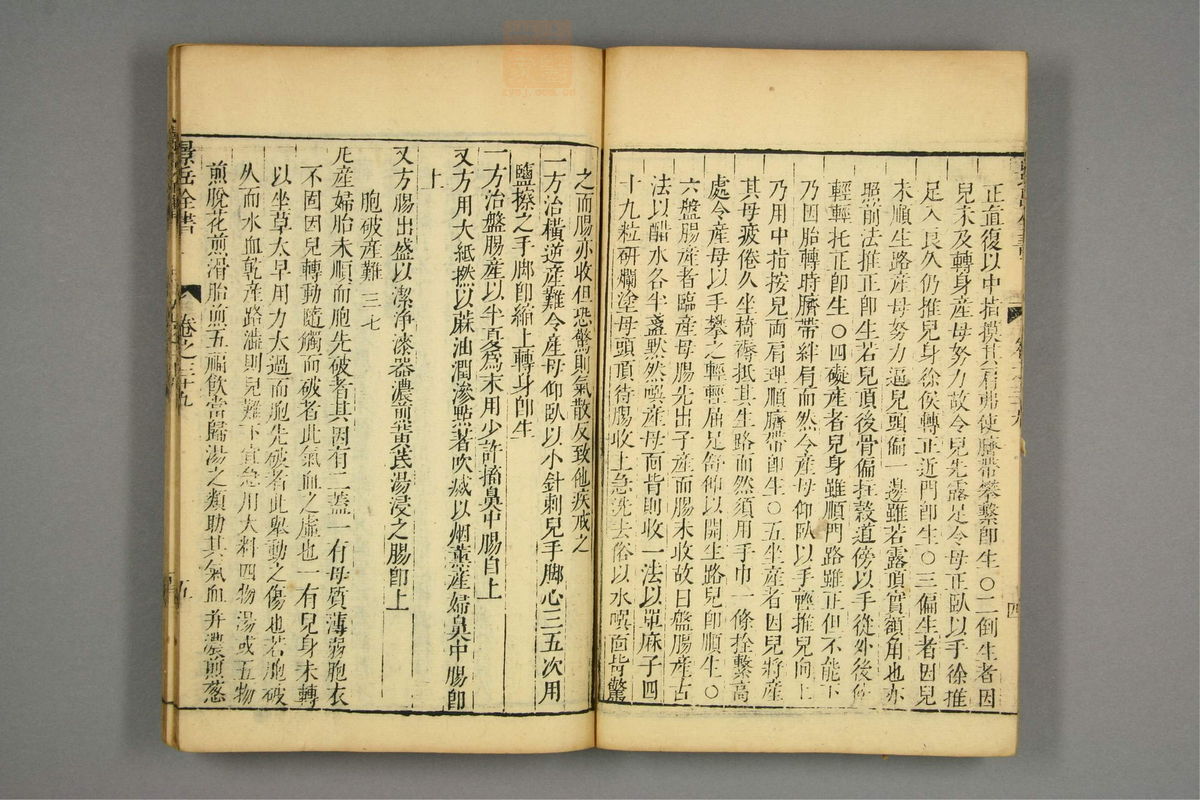 正道復以中指摸其肩弗使臍帶攀繫即生〇二倒生者因
兒未及轉身產母努力故令兒先露足令母正臥以手徐推
足入良久仍推兒身徐俟轉正近門即生〇三偏生者因兒
未順生路產母努力逼兒頭偏一邊雖若露頂實額角也亦
照前法推正即生若兒頂後骨偏拄穀道傍以手從外後
輕輕托正即生〇四礙產者兒身雖順門路雖正但不能下
乃因胎轉時臍帶絆肩而然令產母仰臥以手輕推兒向上
乃用中指按兒兩肩理順臍帶即生〇五坐產者因兒將產
其母疲倦久坐椅褥抵其生路而然須用手巾一條拴繫高
處令產母以手攀之輕輕屈足舒伸以開生路兒即順生〇
六盤腸產者臨產母腸先出子產而腸未收故曰盤腸產古
法以醋水各半盞默然噀產母面背即收一法以萆麻子四
十九粒研爛塗母頭頂待腸收上急洗去俗以水噀面背驚
之而腸亦收但恐驚則氣散反致他疾戒之
一方治橫逆產難令產母仰臥以小針刺兒手腳心三五次用
鹽擦之手腳即縮上轉身即生
一方治盤腸產以半夏為末用少許搐鼻中腸自上
又方用大紙撚以蔴油潤滲點著吹滅以烟薰產婦鼻中腸即
上
又方腸出盛以潔淨漆器濃煎黃芪湯浸之腸即上
胞破產難 三七
凡產婦胎未順而胞先破者其因有二蓋一有母質薄弱胞衣
不固因兒轉動隨觸而破者此氣血之虛也一有兒身未轉
以坐草太早用力太過而胞先破者此舉動之傷也若胞破
久而水血乾產路澁則兒難下宜急用大料四物湯或五物
煎脫花煎滑胎煎五福飲當歸湯之類助其氣血并濃煎葱
景岳全書
卷之三十九
五
四